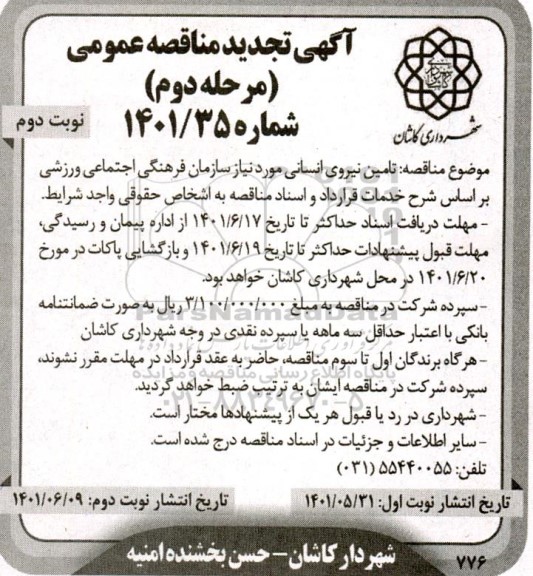 آگهی تجدید مناقصه عمومی
(مرحله دوم)
شماره ۱۴۰۱/۳۵
نوبت دوم
شهرداری کاشان
موضوع مناقصه: تامین نیروی انسانی مورد نیاز سازمان فرهنگی اجتماعی ورزشی
بر اساس شرح خدمات قرارداد و اسناد مناقصه به اشخاص حقوقی واجد شرایط.
- مهلت دریافت اسناد حداکثر تا تاریخ ۱۴۰۱/۶/۱۷ از اداره پیمان و رسیدگی،
مهلت قبول پیشنهادات حداکثر تا تاریخ ۱۴۰۱/۶/۱۹ و بازگشایی پاکات در مورخ
۱۴۰۱/۶/۲۰ در محل شهرداری کاشان خواهد بود.
- سپرده شرکت در مناقصه به مبلغ ۳/۱۰۰/۰۰۰/۰۰۰ ریال به صورت ضمانتنامه
بانکی با اعتبار حداقل سه ماهه یا سپرده نقدی در وجه شهرداری کاشان
- هرگاه برندگان اول تا سوم مناقصه، حاضر به عقد قرارداد در مهلت مقرر نشوند،
سپرده شرکت در مناقصه ایشان به ترتیب ضبط خواهد گردید.
- شهرداری در رد یا قبول هر یک از پیشنهادها مختار است.
- سایر اطلاعات و جزئیات در اسناد مناقصه درج شده است.
تلفن: ۵۵۴۴۰۰۵۵ (۰۳۱)
تاریخ انتشار نوبت اول: ۱۴۰۱/۰۵/۳۱
تاریخ انتشار نوبت دوم: ۱۴۰۱/۰۶/۰۹
شهردار کاشان - حسن بخشنده امنیه
۷۷۶
ParsNamadData
پایگاه اطلاع رسانی مناقصه و مزایده
۰۲۱-۸۸۳۴۹۶۷۰-۵